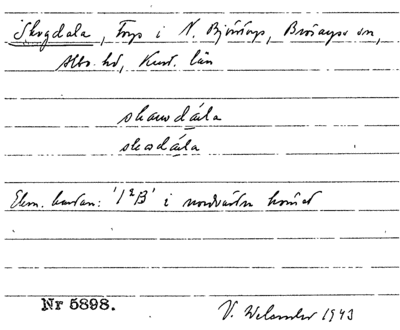 Skogdala, Torp i N. Björstorp, Brösarps sn,
Albo hd, Krist. län
skawdala
skodala
Ekon. kartan: '1²B' i nordvästra hörnet
Nr 5898.
V. Welander 1943